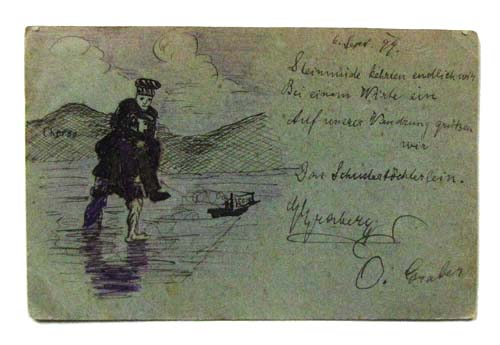 6. Sept. 99.
Steinmüde kehrten endlich wir
Bei einem Wirte ein
Auf unserer Wandrung grüßen
wir
Das Schusterstöchterlein.
Chorog
O. Graber